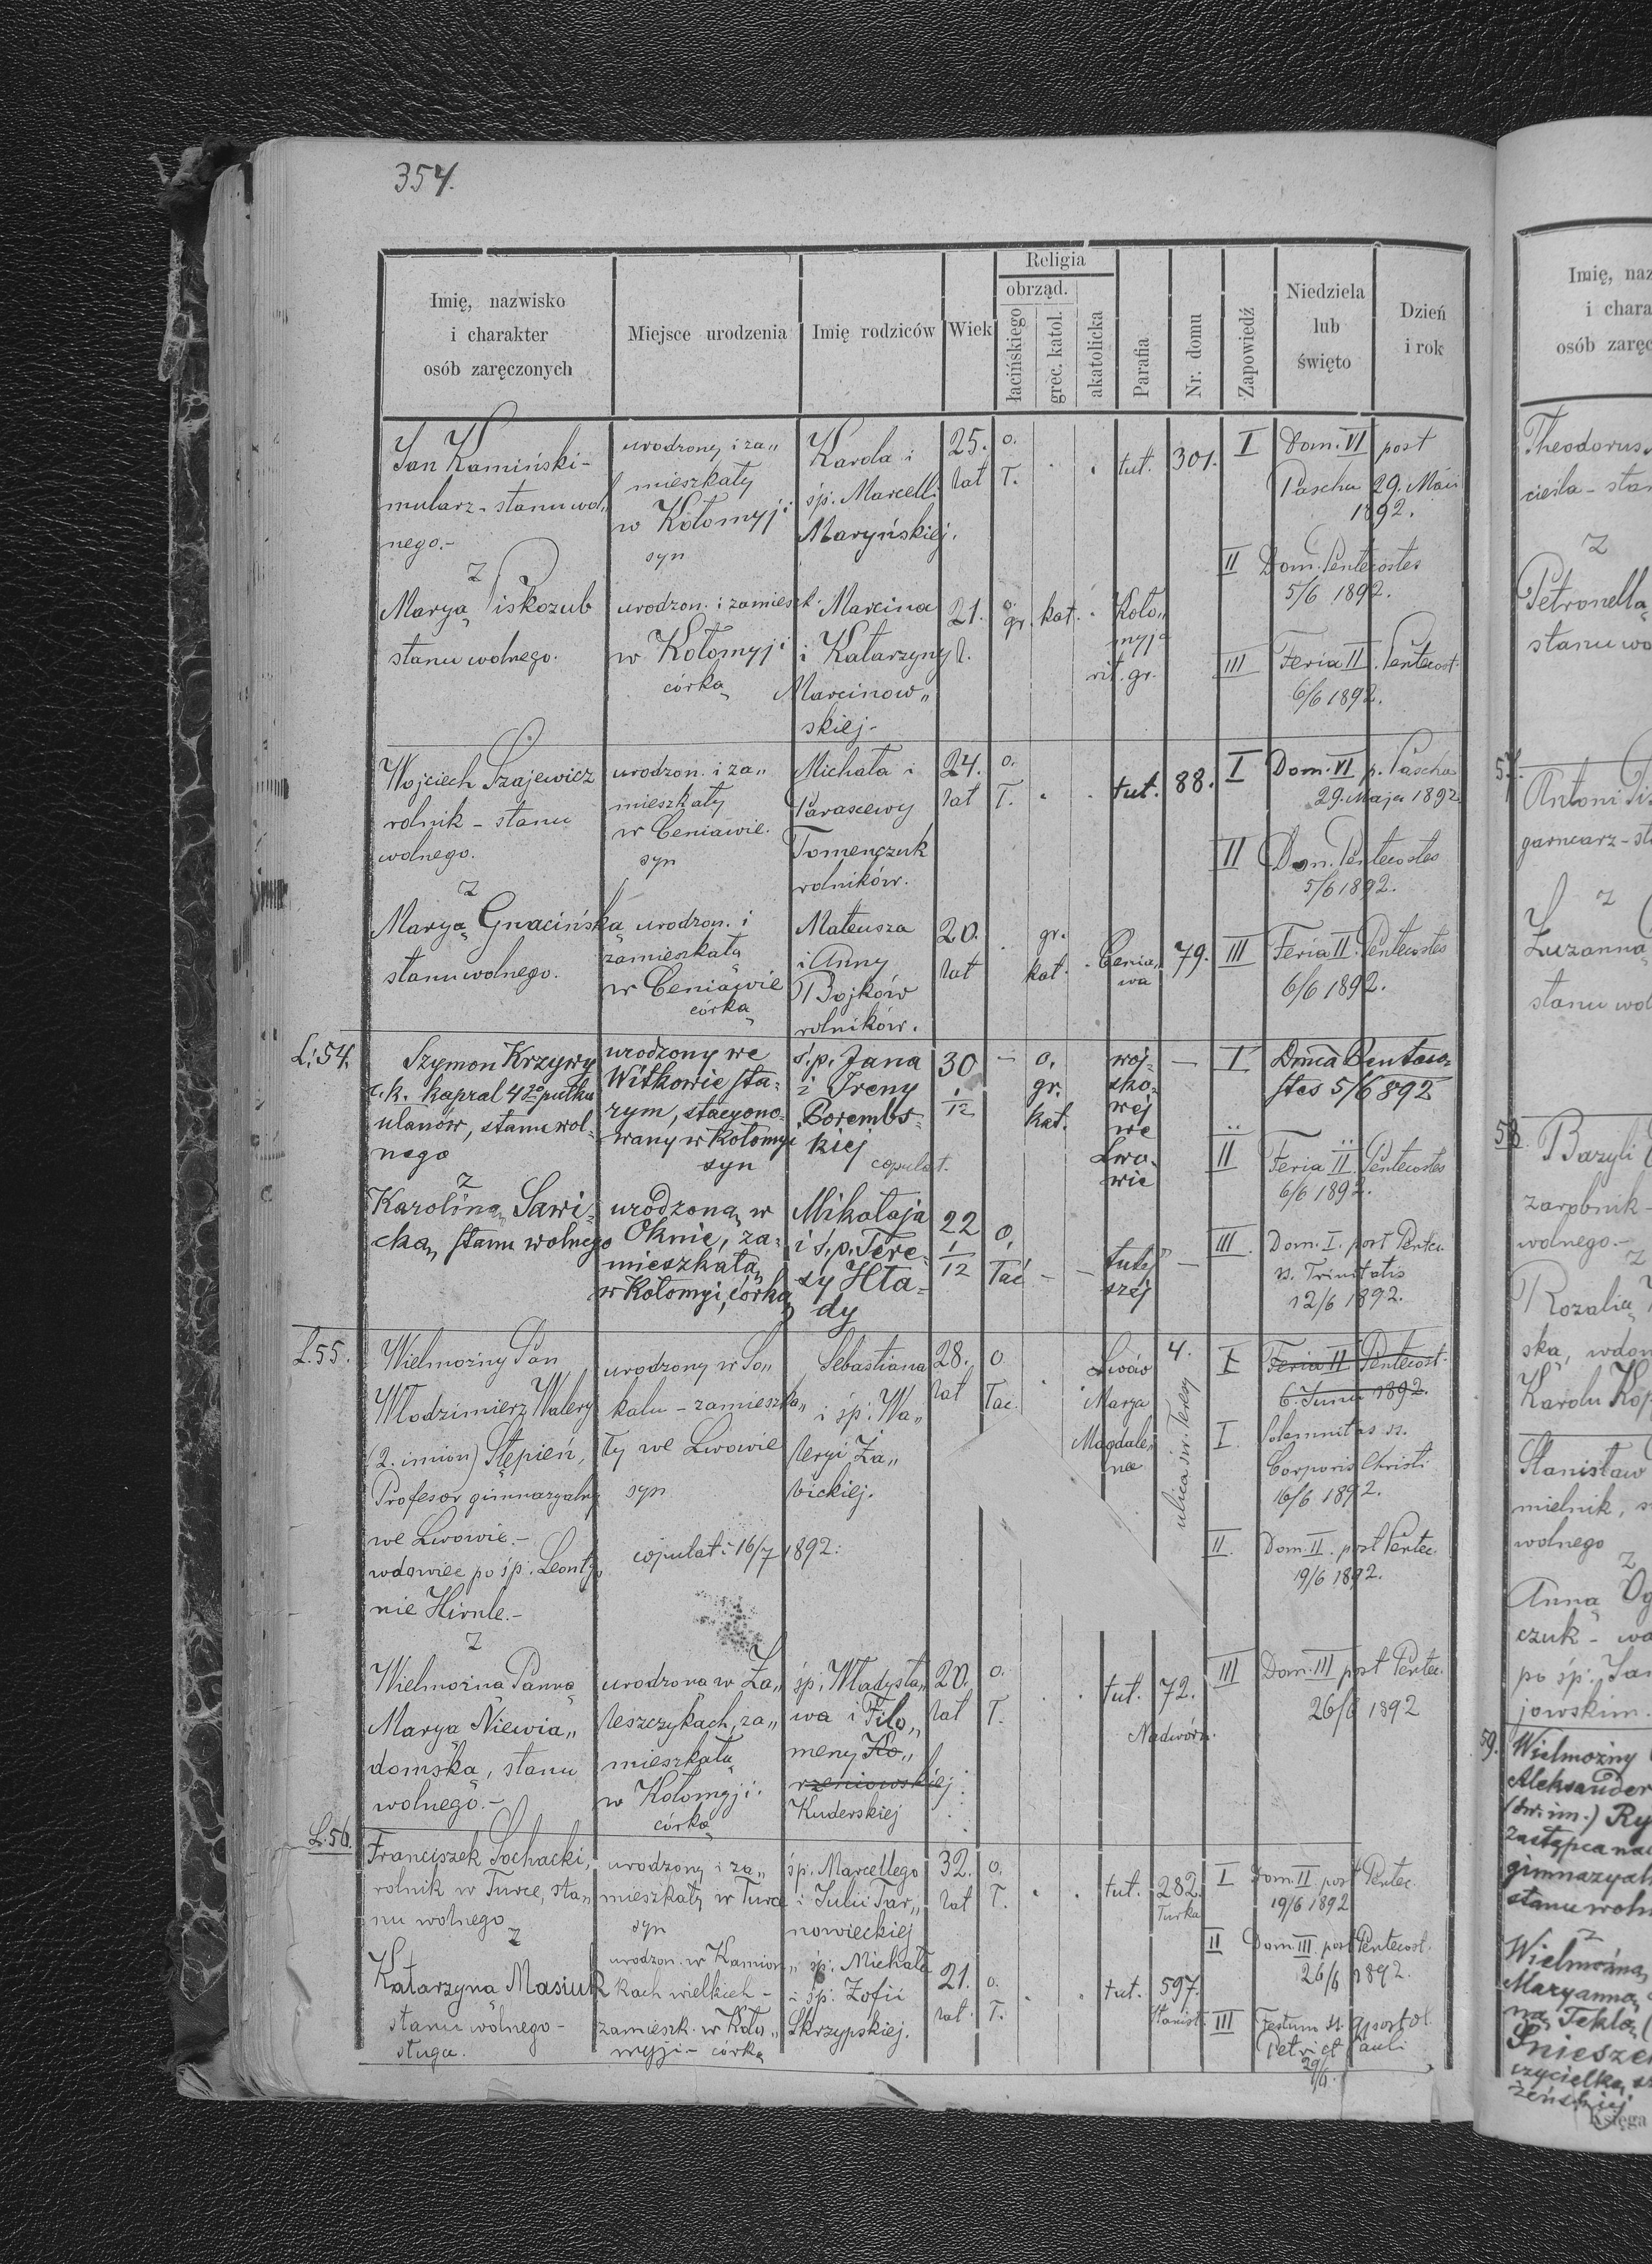 354.
Imię, nazwisko
i charakter
osób zaręczonych
Miejsce urodzenia
Imię rodziców
Wiek
Religia
obrząd.
łacińskiego
grec. katol.
akatolicka
Parafia
Nr. domu
Zapowiedź
Niedziela
lub
święto
Dzień
i rok
Jan Kamiński -
mularz - stanu wol„
nego.-
z
Maryą Piskozub
stanu wolnego.
urodzony i za„
mieszkały
w Kołomyji
syn
urodzon. i zamieszk.
w Kołomyji
córką
Karola i
śp. Marcelli
Maryńskiej.
Marcina
i Katarzyny
Marcinow„
skiej -
25.
lat
21.
l.
o.
Ł.
o.
gr. kat.
tut.
301.
Koło„
myja
rit. gr.
I
Dom. VI post
Pascha 29. Maii
1892.
II
Dom. Pentecostes
5/6 1892.
III
Feria II. Pentecost.
6/6 1892.
Wojciech Szajewicz
rolnik - stanu
wolnego.
z
Maryą Gnacińską
stanu wolnego.
urodzon. i za„
mieszkały
w Ceniawie.
syn
urodzon. i
zamieszkałą
w Ceniawie
córką
Michała i
Parascewy
Tomenczuk
rolników.
Mateusza
i Anny
Bojków
rolników.
24.
lat
20.
lat
o.
Ł.
gr.
kat.
tut.
88.
Cenia„
wa
79.
I
Dom. VI p. Pascha
29. Maja 1892.
II
Dom. Pentecostes
5/6 1892.
III
Feria II. Pentecostes
6/6 1892.
L: 54.
Szymon Krzywy
c.k. kapral 4go pułku
ulanów, stanu wol-
nego
z
Karoliną Sawi-
cką, stanu wolnego
urodzony we
Witkowie sta-
rym, stacyono-
wany w Kołomyi
syn
urodzoną w
Oknie, za-
mieszkałą
w Kołomyi, córką
ś.p. Jana
i Ireny
Porembs-
kiej
copulat.
Mikołaja
i ś.p. Tere-
sy Hła-
dy
30
1/12
22
1/12
-
o.
gr.
kat.
o,
łać
woj-
sko-
wej
we
Lwo-
wie
tutej
szej
I
Domca Pentaco-
stes 5/6 892
II
Feria II. Pentecostes
6/6 1892.
III.
Dom. I. post Pentec.
s. Trinitatis
12/6 1892.
L. 55.
Wielmożny Pan
Włodzimierz Walery
(2. imion) Stępień,
Profesor gimnazyalny
we Lwowie.-
wdowiec po śp. Leonty„
nie Hirnle.-
z
Wielmożną Panną
Maryą Niewia„
domską, stanu
wolnego.-
urodzony w So„
kalu - zamieszka„
ły we Lwowie
syn
copulati 16/7 1892.
urodzoną w Za„
leszczykach, za„
mieszkałą
w Kołomyji.
córką
Sebastiana
i śp. Wa„
leryi Za„
bickiej.
śp. Władysła„
wa i Filo„
meny Ko„
rzeniowskiej
Kuderskiej
28.
lat
20.
lat
o
Łac.
o.
Ł.
Lwów
Marya
Magdale„
na
4.
ulica św. Teresy
tut.
72.
Nadwórn.
I
Feria II Pentecost.
6. Junii 1892.
I
Solemnitas s.
Corporis Christi
16/6 1892.
II.
Dom. II. post Pentec.
19/6 1892.
III
Dom. III post Pentec.
26/6 1892
L. 56.
Franciszek Sochacki,
rolnik w Turce, sta„
nu wolnego
z
Katarzyną Masiuk
stanu wolnego -
sługa.
urodzony i za„
mieszkały w Turce
syn
urodzon. w Kamion„
kach wielkich -
zamieszk. w Koło„
myji - córką
śp. Marcellego
i Julii Tar„
nowieckiej
śp. Michała
i śp. Zofii
Skrzypskiej.
32.
lat
21.
lat.
o.
Ł.
o.
Ł.
tut.
282.
Turka
tut.
597.
Stanisł.
I
Dom. II. post Pentec.
19/6 1892
II
Dom. III. post Pentecost.
26/6 1892.
III
Festum ss. Apostol.
Petri et Pauli
29/6.
Imię, naz
i chara
osób zaręc
Theodorus
cieśla - stan
z
Petronellą
stanu wo
57.
Antoni Pi
garncarz - st
z
Zuzanną
stanu wol
58.
Bazyli
zarobnik -
wolnego -
z
Rozalią
ską, wdow
Karolu Kop
Stanisław
mielnik, s
wolnego
z
Anną Og
czuk - wd
po śp. Jan
jowskim.
59.
Wielmożny
Aleksander
(dw. im.) Ry
zastępca nau
gimnazyal
stanu woln
z
Wielmożną
Maryanną
na Teklą (
Snieszek
czycielką, st
żeńskiej
Księga